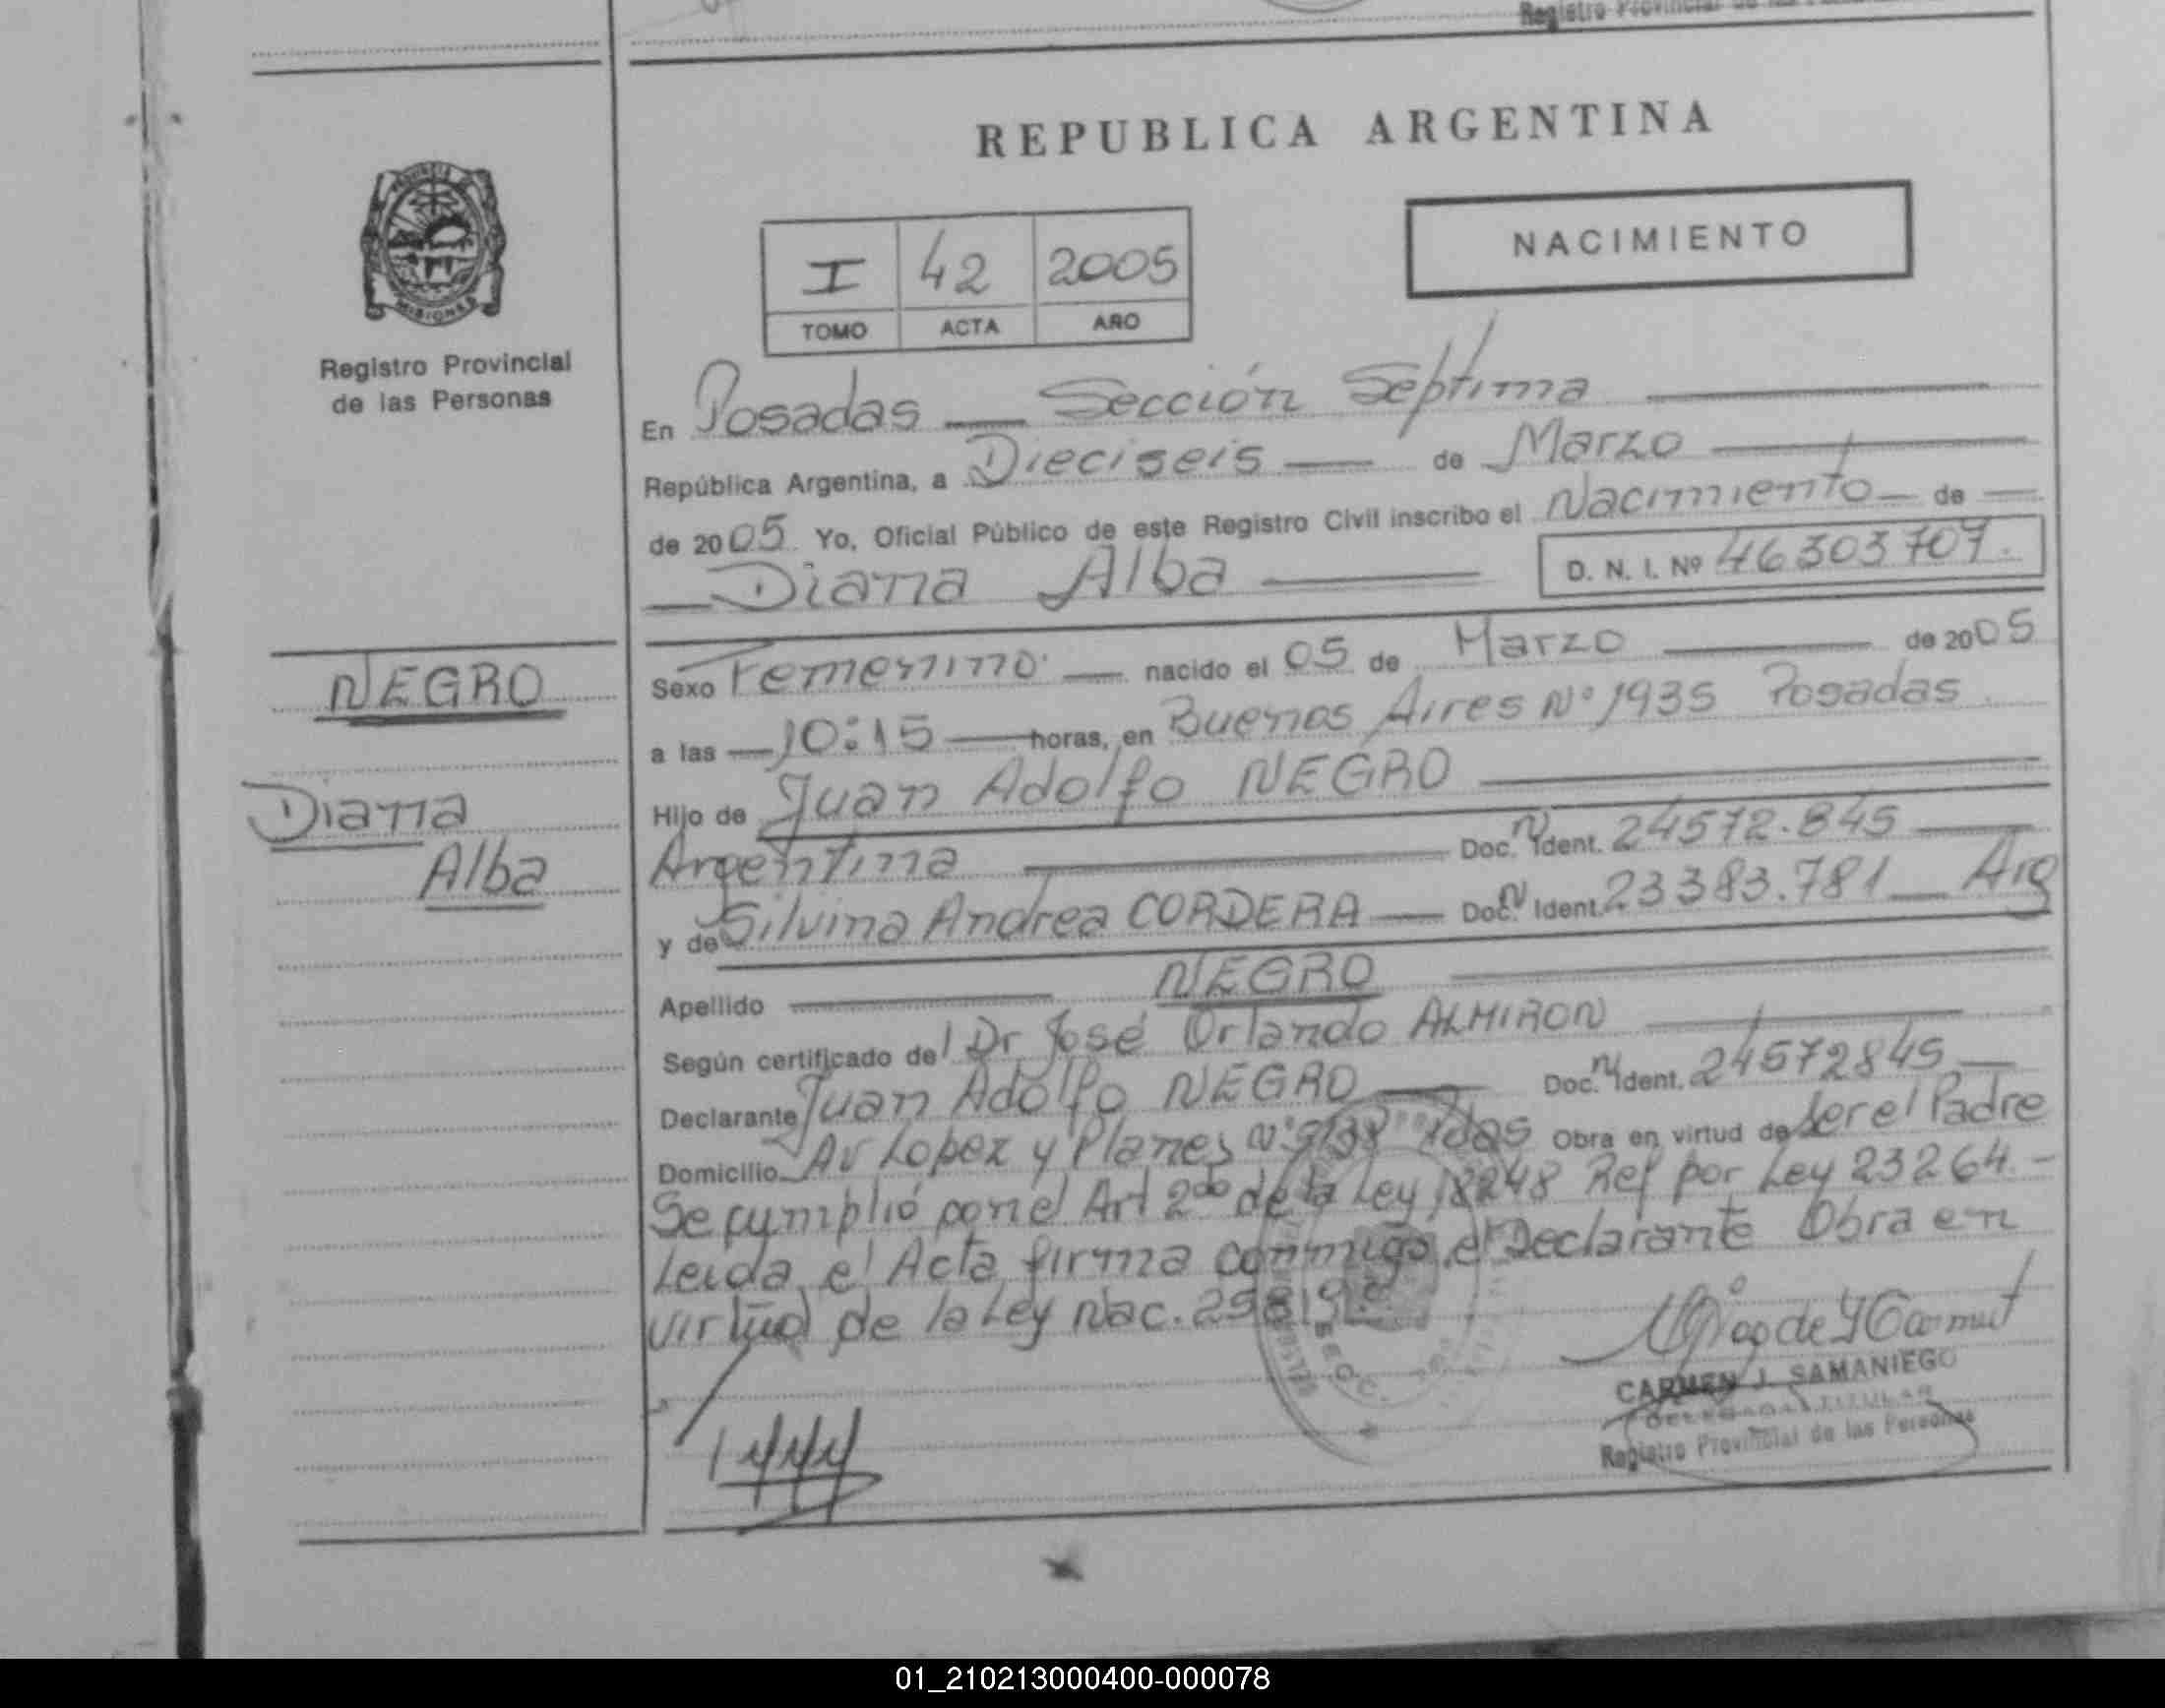 Registro Provincial de las
REPUBLICA ARGENTINA
NACIMIENTO
I 42 2005
TOMO ACTA AÑO
PROVINCIA DE
MISIONES
Registro Provincial
de las Personas
En Posadas — Sección Séptima
República Argentina, a Dieciseis — de Marzo
de 2005 Yo, Oficial Público de este Registro Civil inscribo el Nacimiento — de —
Diana Alba D. N. I. Nº 46303707.
NEGRO
Diana
Alba
Sexo Femenino — nacido el 05 de Marzo de 2005
a las — 10:15 — horas, en Buenos Aires Nº 1935 Posadas
Hijo de Juan Adolfo NEGRO
Argentina Doc. N Ident. 24572.845
y de Silvina Andrea CORDERA — Doc. N Ident. 23383.781 — Arg
Apellido NEGRO
Según certificado del Dr José Orlando ALMIRON
Declarante Juan Adolfo NEGRO Doc. N Ident. 24572845
Domicilio Av Lopez y Planes Nº Obra en virtud de Ser el Padre
Se cumplió con el Art 2do de la Ley 18248 Ref por Ley 23264.-
Leida el Acta firma conmigo el Declarante Obra en
virtud de la Ley Nac.
SECC.
CARMEN J. SAMANIEGO
DELEGADA TITULAR
Registro Provincial de las Personas
01_210213000400-000078